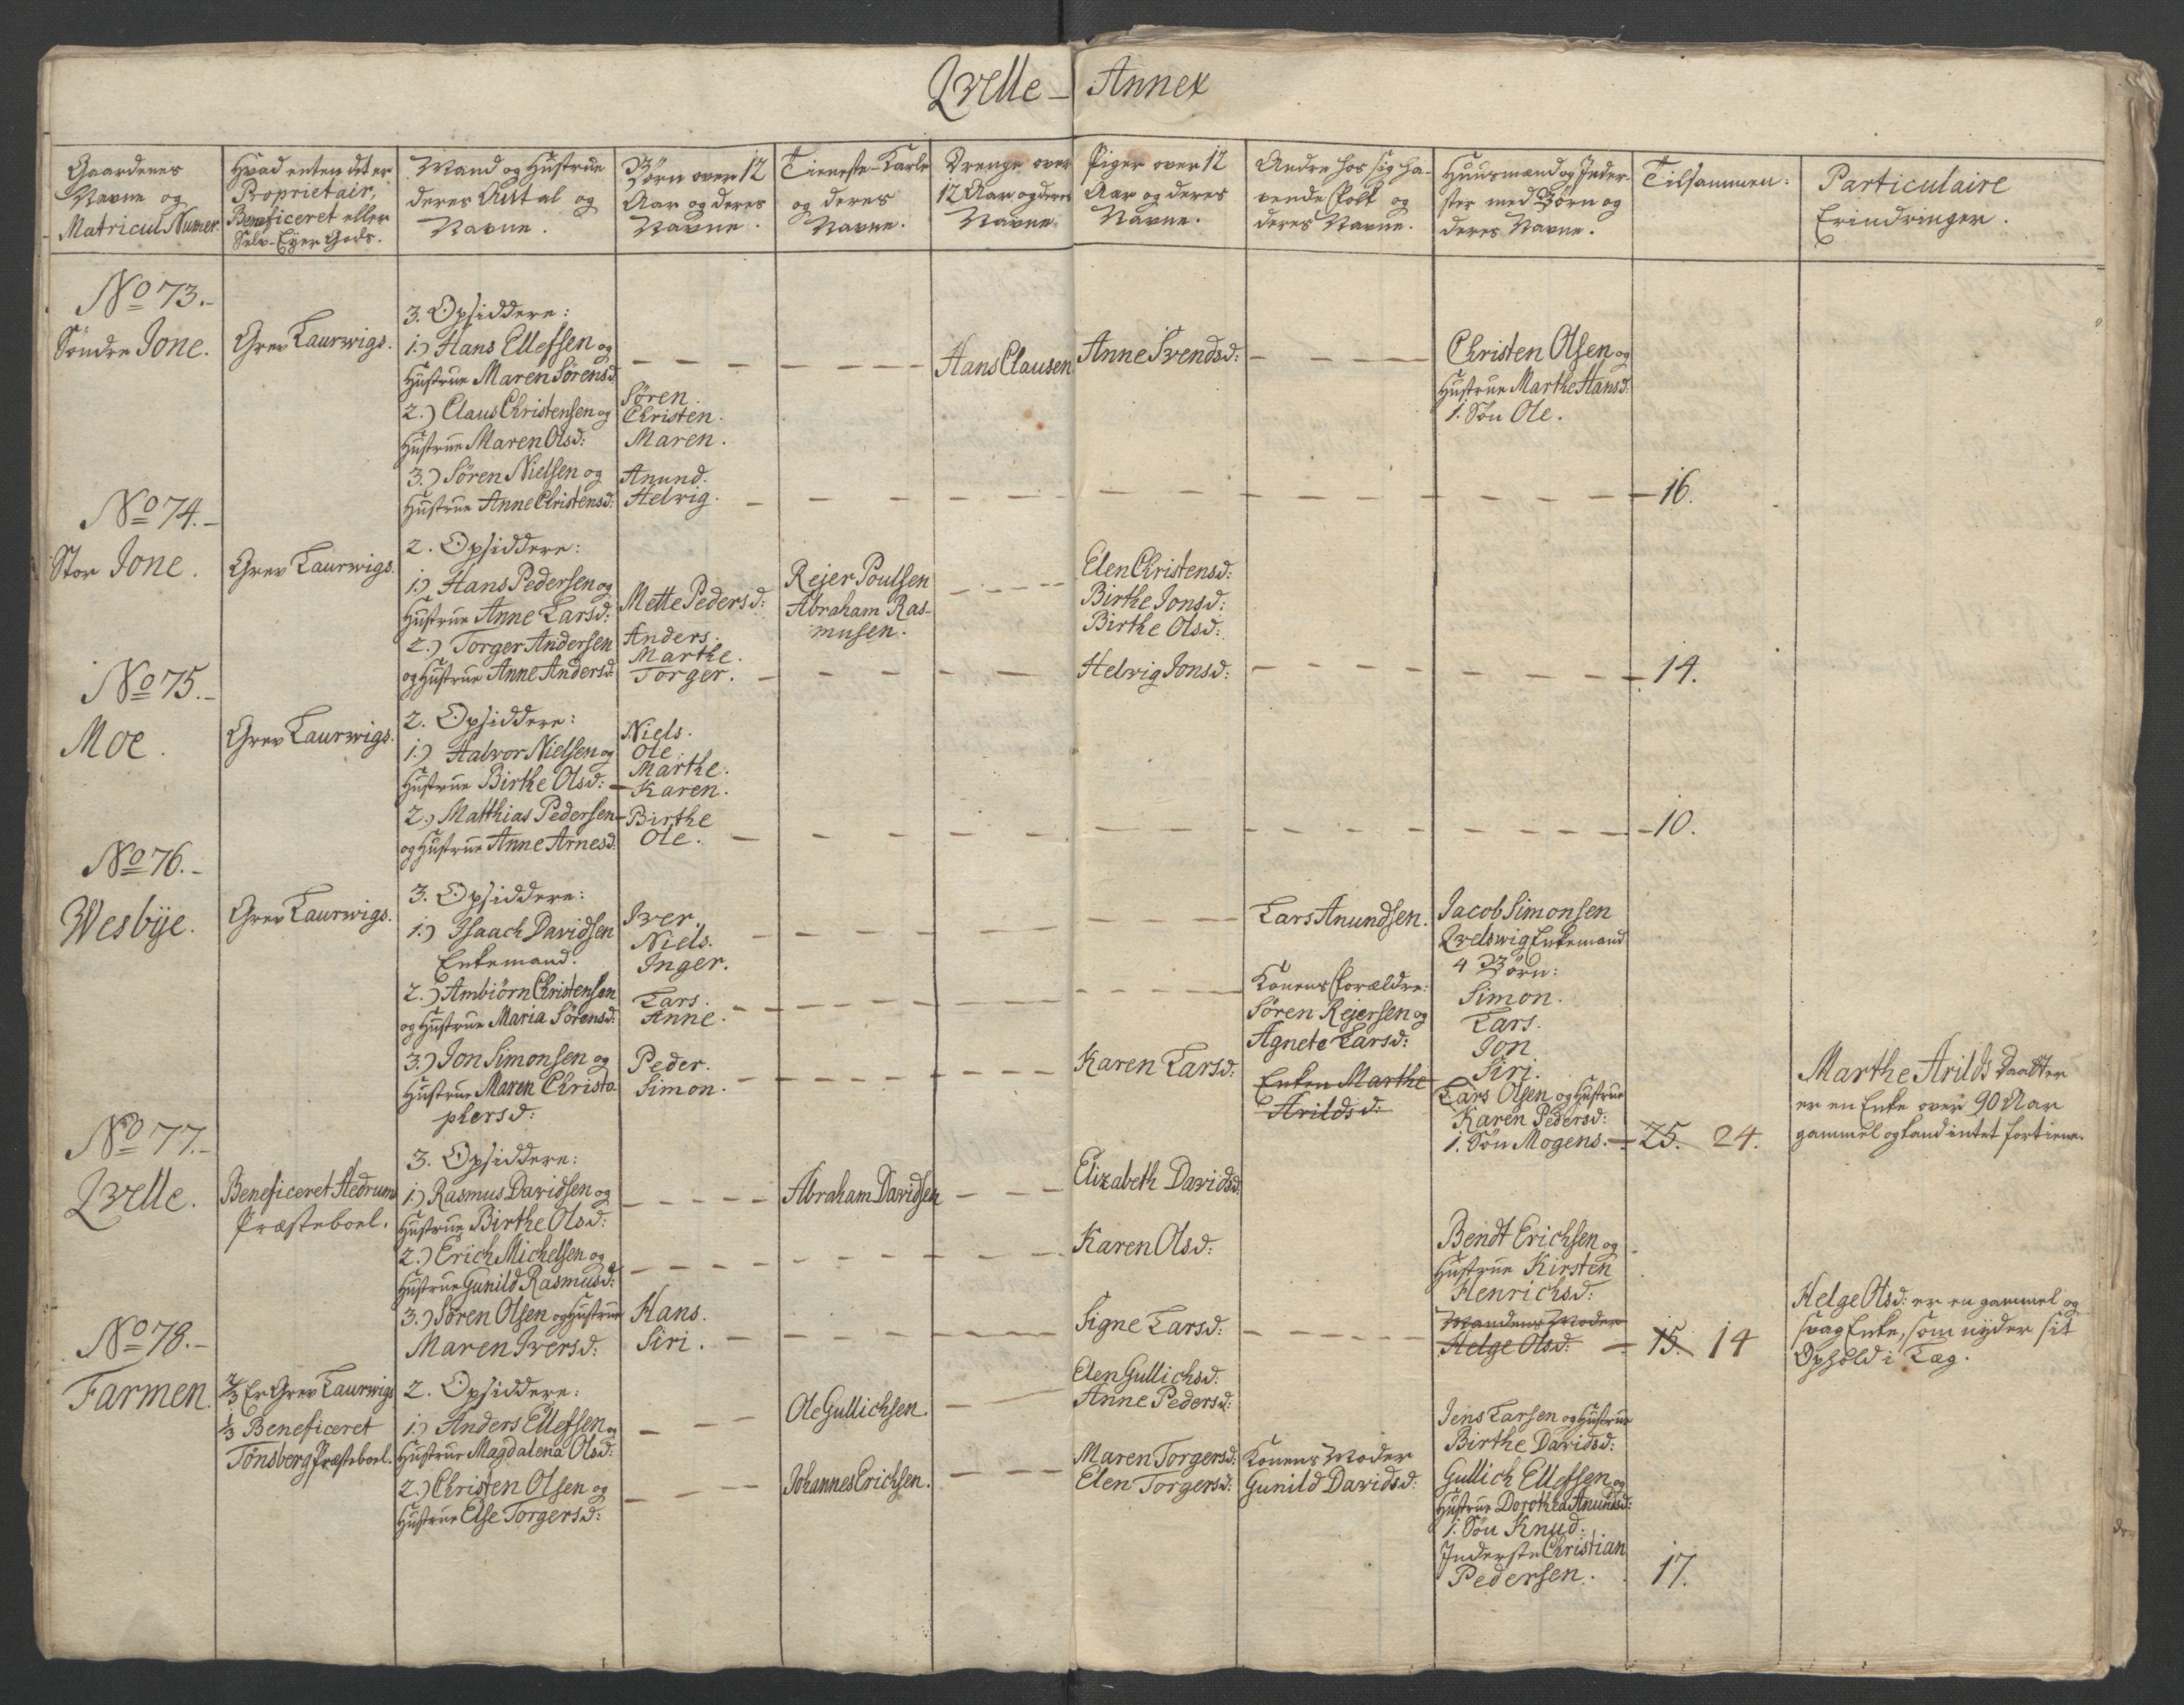 Qvelle – Annex
Gaardenes
Navne og
Matricul Numer.
Hvad enten det er
Proprietair,
Beneficeret eller
Selv-Eÿer Gods.
Mand og Hustrue
deres Antal og
Navne.
Börn over 12
Aar og deres
Navne.
Tieneste-Karle
og deres
Navne.
Drenge over
12 Aar og deres
Navne
Piger over 12
Aar og deres
Navne.
Andre hos sig ha-
vende Folk og
deres Navne.
Huusmænd og Inder-
ster med Börn og
deres Navne.
Tilsammen:
Particulaire
Erindringer.
No 73.
Söndre Jone.
Grev Laurwigs.
3. Opsiddere:
1.) Hans Ellefsen og
Hustrue Maren Sörensd:
2.) Claus Christensen og
Hustrue Maren Olsd:
3.) Sören Nielsen og
Hustrue Anne Christensd:
Sören.
Christen.
Maren.
Anund.
Helvig.
Hans Clausen
Anne Svendsd:
Christen Olsen og
Hustrue Marthe Hansd:
1. Sön Ole.
16.
No 74.
Stor Jone.
Grev Laurwigs.
2. Opsiddere:
1.) Hans Pedersen og
Hustrue Anne Larsd:
2.) Torger Andersen
og Hustrue Anne Andersd:
Mette Pedersd:
Anders.
Marthe.
Torger.
Rejer Poulsen
Abraham Ras-
musen.
Elen Christensd:
Birthe Jonsd:
Birthe Olsd:
Helvig Jonsd:
14.
No 75.
Moe.
Grev Laurwigs.
2. Opsiddere:
1.) Halvor Nielsen og
Hustrue Birthe Olsd:
2.) Matthias Pedersen
og Hustrue Anne Arnesd:
Niels.
Ole.
Marthe.
Karen.
Birthe
Ole.
10.
No 76.
Wesbÿe.
Grev Laurwigs.
3. Opsiddere:
1.) Isaach Davidsen
Enkemand.
2.) Ambiörn Christensen
og Hustrue Maria Sörensd:
3.) Jon Simonsen og
Hustrue Maren Christo-
phersd:
Iver.
Niels.
Inger.
Lars.
Anne.
Peder.
Simon.
Karen Larsd:
Lars Anundsen.
Konens Forældre:
Sören Rejersen og
Agnete Larsd:
Enken Marthe
Arildsd:
Jacob Simonsen
Qvelswig Enkemand
4 Börn:
Simon.
Lars.
Jon
Siri.
Lars Olsen og Hustrue
Karen Pedersd:
1. Sön Mogens.
25. 24.
Marthe Arilds Daatter
er en Enke over 90 Aar
gammel og kand intet fortiene.
No 77.
Qvelle.
Beneficeret Hedrum
Præsteboel.
3. Opsiddere:
1.) Rasmus Davidsen og
Hustrue Birthe Olsd:
2.) Erich Michelsen og
Hustrue Gunild Rasmusd:
3.) Sören Olsen og Hustrue
Maren Iversd:
Hans.
Siri.
Abraham Davidsen
Elizabeth Davidsd:
Karen Olsd:
Signe Larsd:
Bendt Erichsen og
Hustrue Kirsten
Henrichsd:
Mandens Moder
Helge Olsd:
15. 14
Helge Olsd: er en gammel og
svag Enke, som nÿder sit
Ophold i Læg.
No 78.
Farmen.
2/3 Er Grev Laurwigs
1/3 Beneficeret
Tönsberg Præsteboel.
2. Opsiddere:
1.) Anders Ellefsen og
Hustrue Magdalena Olsd:
2.) Christen Olsen og
Hustrue Else Torgersd:
Ole Gullichsen.
Johannes Erichsen.
Elen Gullichsd:
Anne Pedersd:
Maren Torgersd:
Elen Torgersd:
Konens Moder
Gunild Davidsd:
Jens Larsen og Hustrue
Birthe Davidsd:
Gullich Ellefsen og
Hustrue Dorothea Anundsd:
1. Sön Knud.
Inderste Christian
Pedersen.
17.